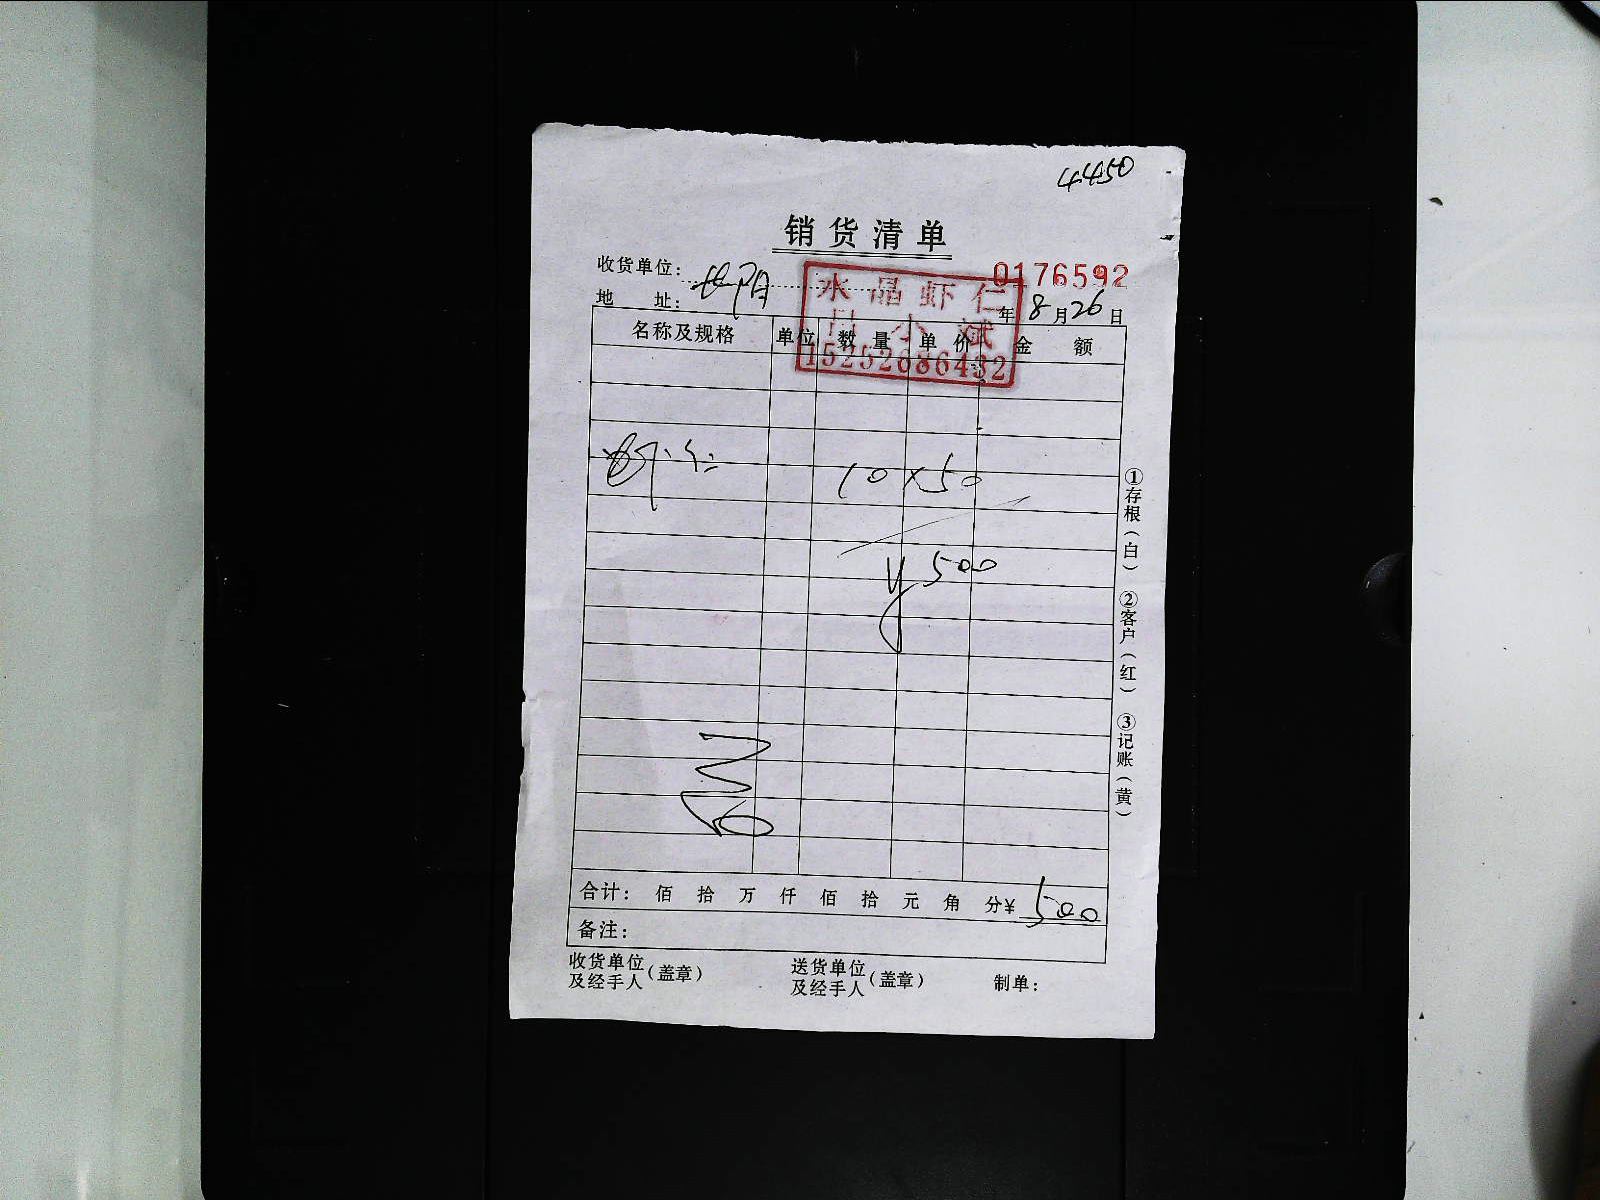 4450
销货清单
收货单位：
0176592
水晶虾仁
地 址：
年 8 月 26 日
小斌
名称及规格 单位 数量 单价 金额
15252686432
虾仁 10×50
¥500
合计： 佰 拾 万 仟 佰 拾 元 角 分 ¥ 500
备注：
收货单位及经手人（盖章） 送货单位及经手人（盖章） 制单：
①存根（白） ②客户（红） ③记账（黄）